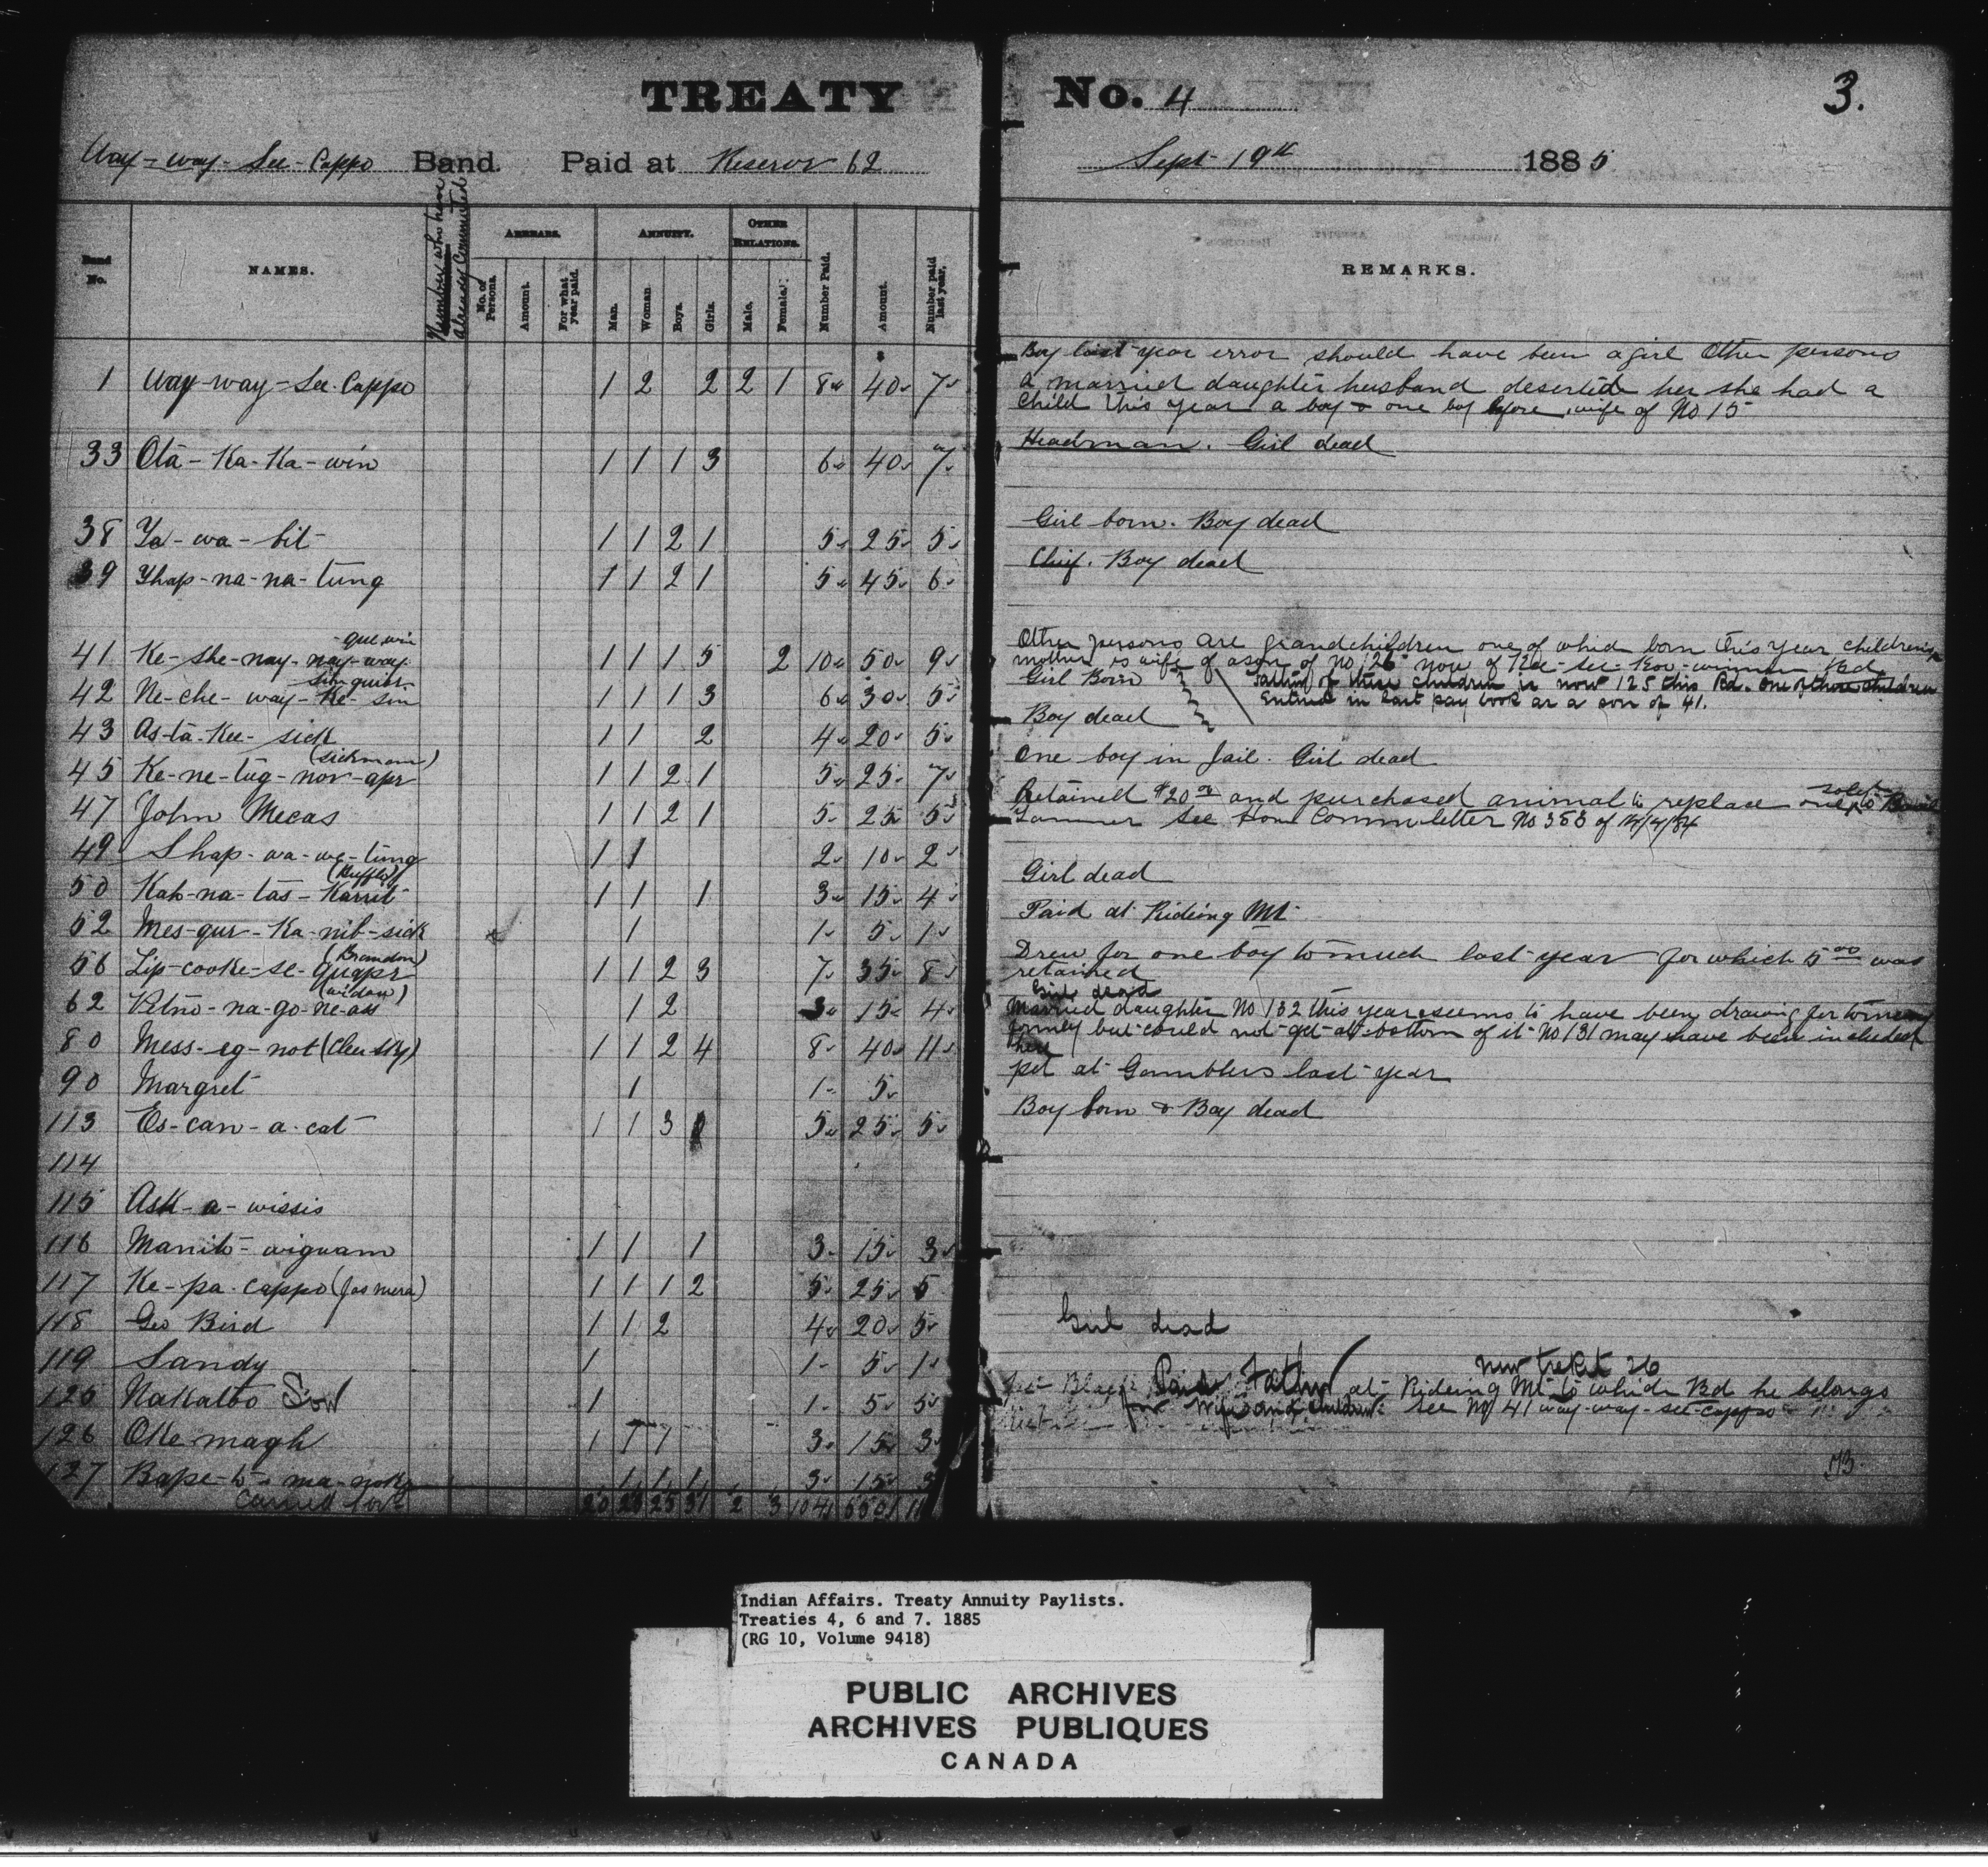 TREATY No. 4
3.
Way-way-See-Cappo Band. Paid at Reserve 62 Sept 19th 1885
Number who have already Commuted
Band No. NAMES. ARREARS. ANNUITY. OTHER RELATIONS. Number Paid. Amount. Number paid last year. REMARKS.
No. of Persons. Amount. For what year paid. Man. Woman Boys. Girls. Male. Female.
Boy last year error should have been a girl Other persons
1 Way-way-See-Cappo 1 2 2 2 1 8 40 7 a married daughter husband deserted her she had a
child this year a boy & one boy before wife of No 15
33 Ota-Ka-Ka-win 1 1 1 3 6 40 7 Headman. Girl dead
38 Ya-wa-bit 1 1 2 1 5 25 5 Girl born. Boy dead
39 Yhap-na-na-tung 1 1 2 1 5 45 6 Chief. Boy dead
que win
41 Ke-she-nay-nay-way 1 1 1 5 2 10 50 9 Other persons are grandchildren one of which born this year children's
mother is wife of a son of No 126 now of
42 Ne-che-way-Ke-sin 1 1 1 3 6 30 5 Girl Born
Father of these children is now 125 this Bd. One of those children
Entered in last pay book as a son of 41.
43 As-ta-Kee-sick 1 1 2 4 20 5 Boy dead
(Sickman)
45 Ke-ne-tug-nor-apr 1 1 2 1 5 25 7 One boy in Jail. Girl dead
47 John Mecas 1 1 2 1 5 25 5 Retained $20.00 and purchased animal to replace one
see Commr letter No 353 of 14/4/84
49 Shap-wa-we-tung 1 1 2 10 2
50 Kah-na-tas-Karret 1 1 1 3 15 4 Girl dead
52 Mes-qur-Ka-nib-sick 1 1 5 1 Paid at Rideing Mt
(Brandon)
56 Lip-cooke-se-quapr 1 1 2 3 7 35 8 Drew for one boy to much last year for which 5.00 was
retained
(widow)
62 Petno-na-go-ne-ass 1 2 3 15 4 Girl dead
80 Mess-eg-not (Clear Sky) 1 1 2 4 8 40 11 Married daughter No 132 this year seems to have been drawing for
but could not get at bottom of it No 131 may have been included
here
90 Margret 1 1 5 pd at Gamblers last year
113 Es-can-a-cat 1 1 3 5 25 5 Boy born & Boy dead
114
115 Ask-a-wissis
116 Manito-wigwam 1 1 1 3 15 3
117 Ke-pa-cappo (Jas mera) 1 1 1 2 5 25 5
118 Geo Bird 1 1 2 4 20 5 Girl dead
119 Sandy 1 1 5 1
new ticket 26
125 Nakatoo Son 1 1 5 5 Paid Father at Rideing Mt to which Bd he belongs
for wife and children see No 41 way-way-see-cappo
126 Oke magh 1 1 1 3 15 3
127 Bape-to-ma-noka 1 1 1 3 15 3
Carried forw 20 25 31 2 3 104 550
Indian Affairs. Treaty Annuity Paylists.
Treaties 4, 6 and 7. 1885
(RG 10, Volume 9418)
PUBLIC ARCHIVES
ARCHIVES PUBLIQUES
CANADA